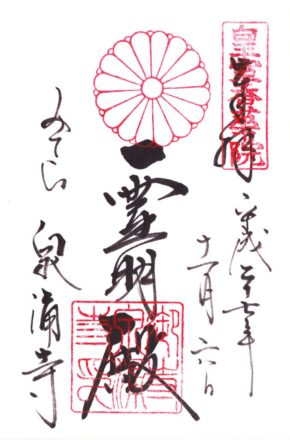 皇室香華院
奉拝
平成二十七年
十一月六日
霊明殿
みてら 泉涌寺